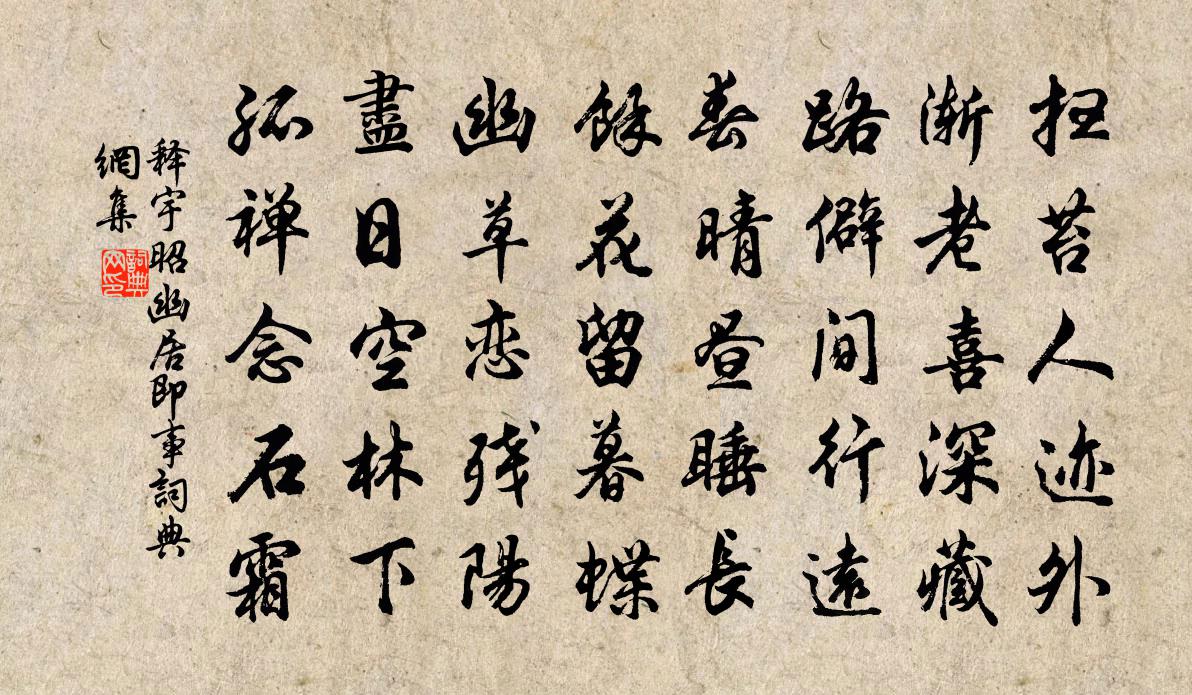 扫苔人迹外
渐老喜深藏
路僻间行远
春晴昼睡長
馀花留暮蝶
幽草恋残陽
盡日空林下
孤禅念石霜
释宇昭幽居即事詞典
網集
詞典
网印